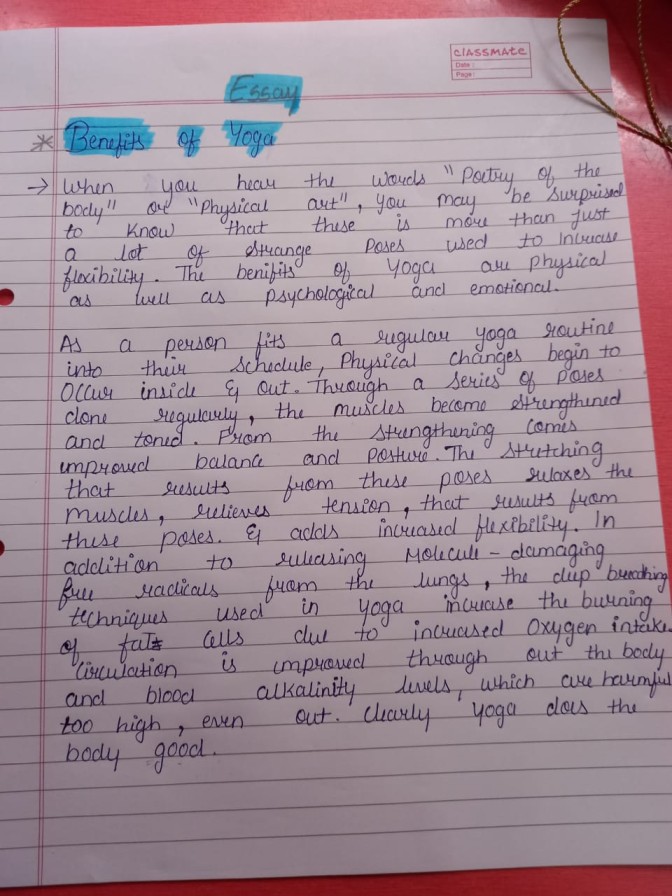 CLASSMATE
Date :
Page :
Essay
* Benefits of Yoga
→ When you hear the words "Poetry of the
body" or "Physical art", you may be surprised
to know that these is more than just
a lot of strange poses used to Intrease
flexibility. The benifits of Yoga are physical
as well as psychological and emotional.
As a person fits a regular yoga routine
into their schedule, Physical changes begin to
Occur inside & out. Through a series of poses
done regularly, the muscles become strengthened
and toned. From the strengthening comes
improved balance and posture. The stretching
that results from these poses relaxes the
muscles, relieves tension, that results from
these poses. & adds increased flexibility. In
addition to releasing Molecule - damaging
free radicals from the lungs, the deep breathing
techniques used in yoga increase the burning
of fats cells due to increased Oxygen intake.
Circulation is improved through out the body
and blood alkalinity levels, which are harmful
too high, even out. Clearly yoga does the
body good.